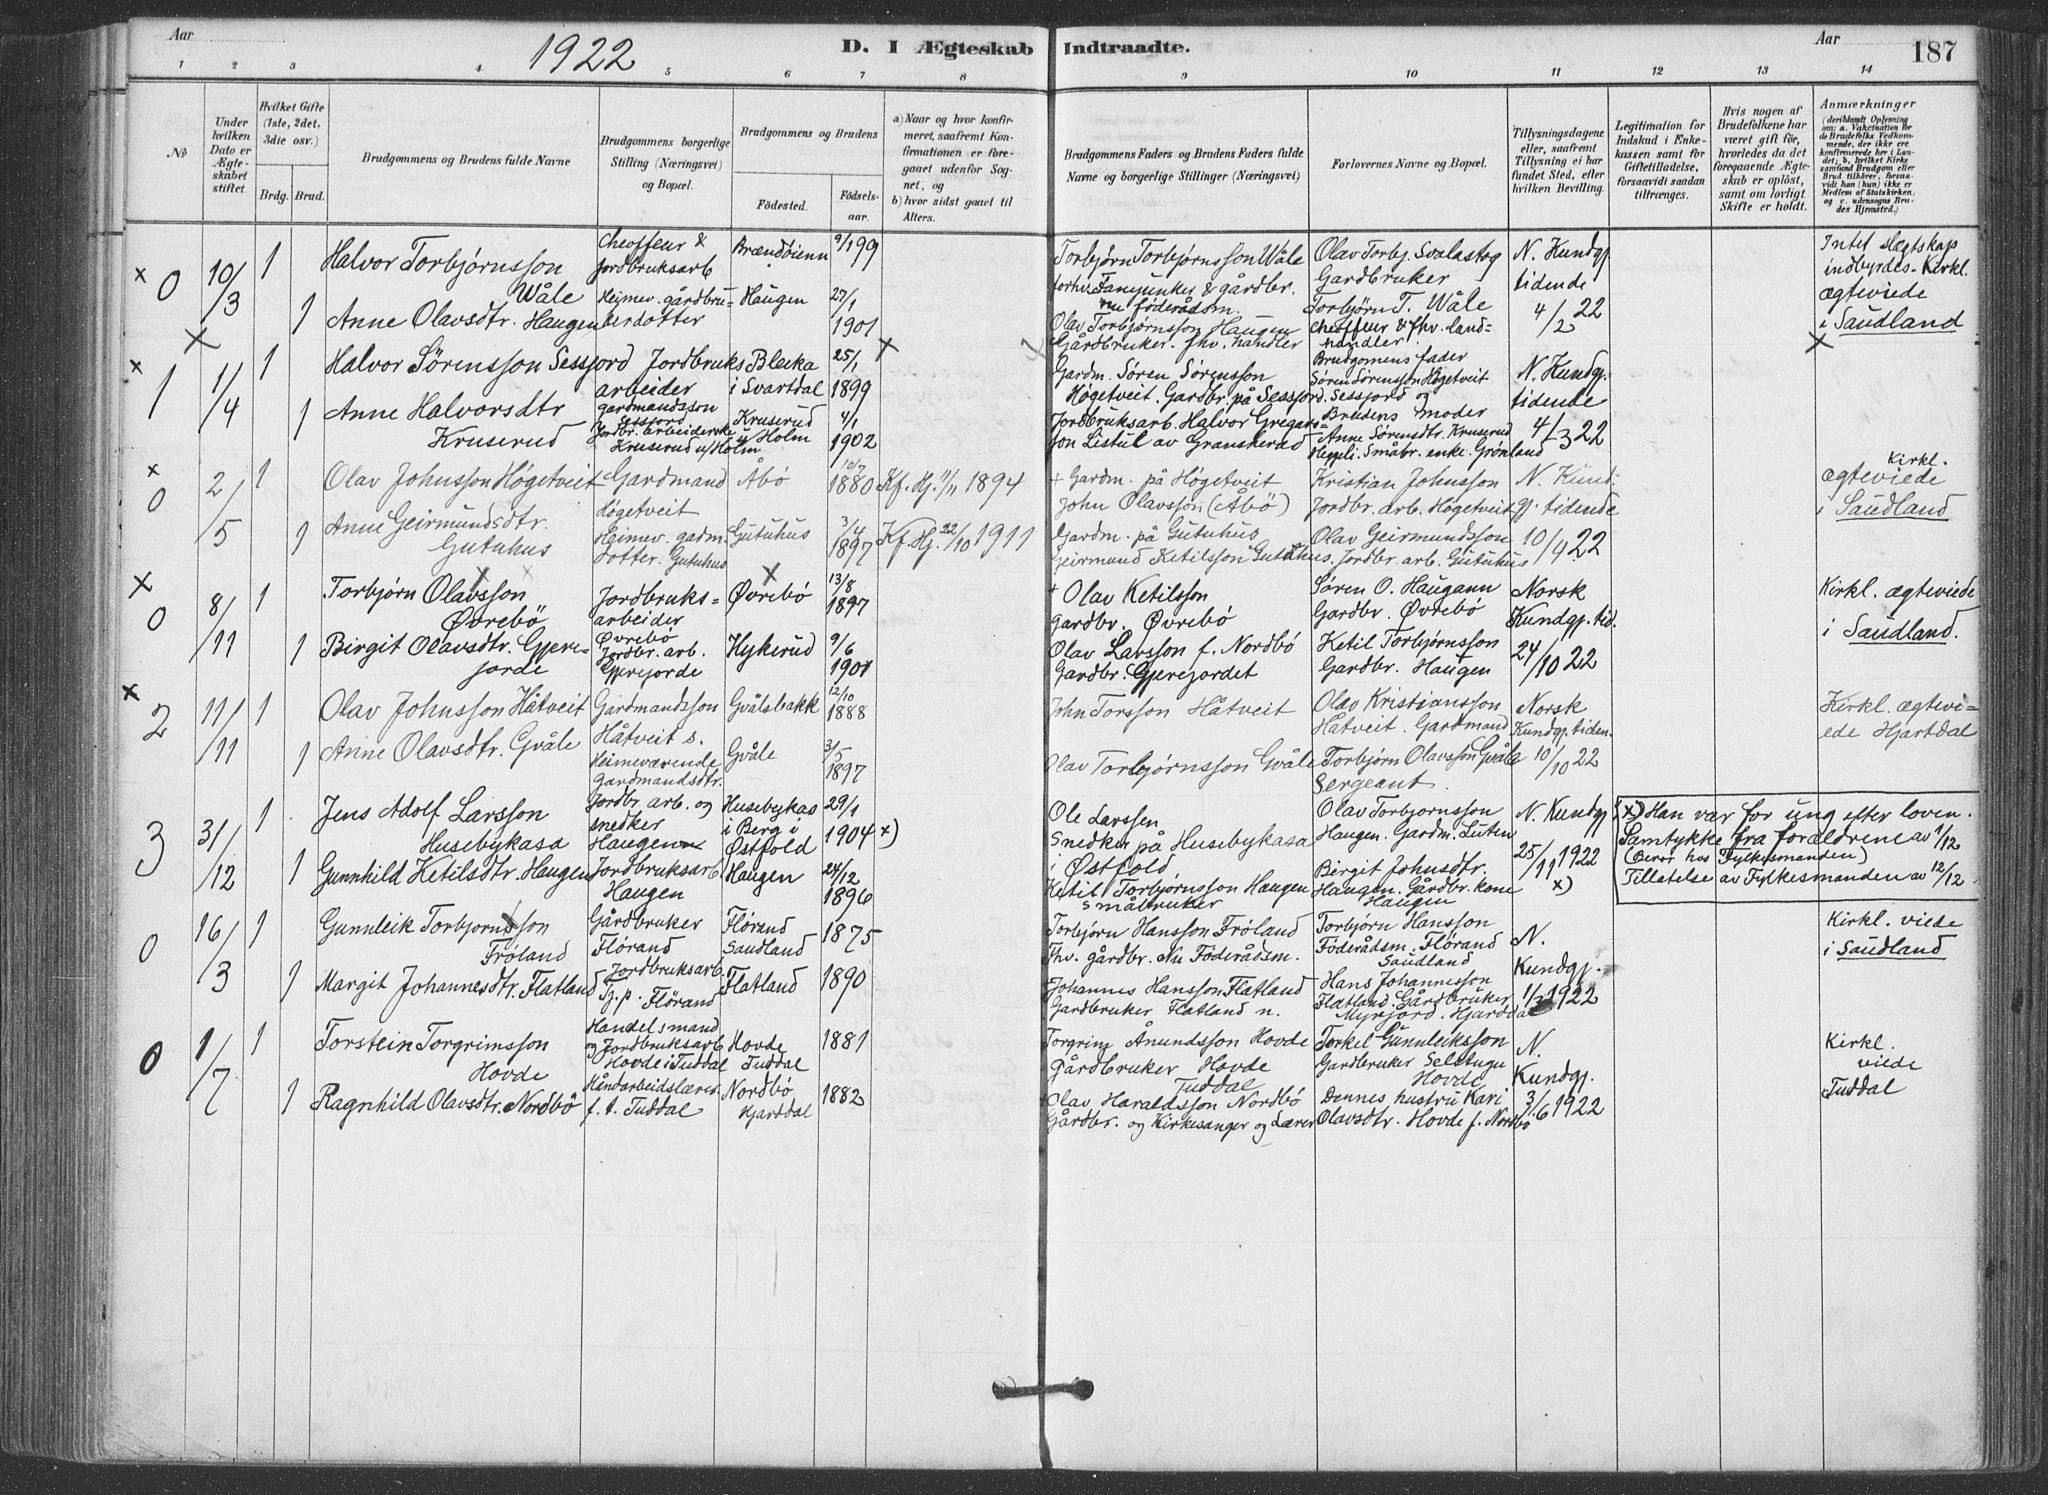 Aar 1922 D. I Ægteskab Indtraadte. Aar 187
1 2 3 4 5 6 7 8 9 10 11 12 13 14
No
Under hvilken Dato er Ægteskabet stiftet.
Hvilket Gifte (1ste, 2det, 3die osv.)
Brdg. Brud.
Brudgommens og Brudens fulde Navne
Brudgommens borgerlige Stilling (Næringsvei) og Bopæl.
Brudgommens og Brudens
Fødested.
Fødselsaar.
a) Naar og hvor konfirmeret, saafremt Konfirmationen er foregaaet udenfor Sognet, og
b) hvor sidst gaaet til Alters.
Brudgommens Faders og Brudens Faders fulde Navne og borgerlige Stillinger (Næringsvei)
Forlovernes Navne og Bopæl.
Tillysningsdagene eller, saafremt Tillysning ei har fundet Sted, efter hvilken Bevilling.
Legitimation for Indskud i Enkekassen samt for Giftetilladelse, forsaavidt saadan tiltrænges.
Hvis nogen af Brudefolkene har været gift før, hvorledes da det foregaaende Ægteskab er opløst, samt om lovligt Skifte er holdt.
Anmærkninger (deriblandt Oplysning om: a. Vakcination for de Brudefolks Vedkommende, der ikke ere konfirmerede her i Landet; b. hvilket Kirkesamfund Brudgom eller Brud tilhører, forsaavidt han (hun) ikke er Medlem af Statskirken, og c. udensogns Brudes Hjemsted.)
x 0 10/3 1
Halvor Torbjørnsson Wåle
Cheoffeur & Jordbruksarb
Brændøienn
9/1 99
Torbjørn Torbjørnsson Wåle
forhv. Fanejunker & gårdbr. nu föderådsm.
Olav Torbj. Svalastog
Gardbruker
N. Kundgj
tidende
4/2 22
Intet slægtskap
indbyrdes - Kirkl.
ægteviede
i Saudland
1 Anne Olavsdtr. Haugen
Heimev. gårdbru-
kerdotter
Haugen
27/1
1901
Olav Torbjørnsson Haugen
Gårdbruker. fhv. handler
Torbjørn T. Wåle
Cheoffeur & fhv. land-
handler.
x 1 1/4 1
Halvor Sörensson Sessjord
Jordbruks
arbeider
gardmandsson
Sessjord
Bleika
i Svartdal
25/1
1899
x
Gardm. Sören Sörensson
Högetveit. Gardbr. på Sessjord.
Brudgomens fader
Sören Sörensson Högetveit
Sessjord og
N. Kundgj.
tidende
4/3 22
x
1 Anne Halvorsdtr
Kruserud
Jordbr. arbeiderske
Kruserud u/Holm
Kruserud
u/Holm
4/1
1902
Jordbruksarb. Halvor Gregars-
son Listul av Gransherad
Brudens moder
Anne Sörensdtr. Kruserud
Heggeli. Småbr. enke. Grönland
x 0 2/5 1
Olav Johnsson Högetveit
Gardmand
Högetveit
Åbö
10/7
1880
Kf. Hj. 11/11 1894
+ Gardm. på Högetveit
John Olavsson (Åbö)
Kristian Johnsson
Jordbr. arb. Högetveit
N. Kund:
gj. tidende
10/4 22
Kirkl.
ægteviede
i Saudland
1 Anne Geirmundsdtr.
Gutuhus
Heimev. gardm-
dotter. Gutuhus
Gutuhus
3/4
1897
Kf. Hj. 22/10 1911
Gardm. på Gutuhus
Geirmund Ketilsson Gutuhus.
Olav Geirmundsson
Jordbr. arb. Gutuhus
x 0 8/11 1
Torbjørn Olavsson
Øvrebö
Jordbruks=
arbeider
Øvrebö
Øvrebö
13/8
1897
+ Olav Ketilsson
gardbr. Øvrebö
Sören O. Haugann
Gardbr. Øvrebö
Norsk
Kundgj. tid.
24/10 22
Kirkl. ægteviede
i Saudland.
1 Birgit Olavsdtr. Gjere-
jorde
Jordbr. arb.
Gjerejorde
Hykerud
9/6
1901
Olav Larsson f. Nordbö
Gardbr. Gjerejordet
Ketil Torbjørnsson
Gardbr. Haugen
x 2 11/11 1
Olav Johnsson Håtveit
Gardmandsson
Håtveit s.
Gvålsbakk
12/10
1888
John Torsson Håtveit
Olav Kristiansson
Håtveit. Gardmand
Norsk
Kundgj. tiden.
10/10 22
Kirkl. ægtevi-
ede Hjartdal
1 Anne Olavsdtr. Gvåle
Heimeværende
gardmandsdtr.
Gvåle
3/5
1897
Olav Torbjørnsson Gvåle
Torbjørn Olavsson Gvåle
Sergeant.
3 31/12 1
Jens Adolf Larsson
Husebykasa
Jordbr. arb. og
snedker
Haugen
Husebykas
i Berg i
Østfold
29/1
1904 x)
Ole Larssen
Snedker på Husebykasa
i Østfold
Olav Torbjornsson
Haugen. Gardm. Liten
N. Kundgj
25/11 1922
x)
x) Han var for ung efter loven.
Samtykke fra foræeldrene av 1/12
(Beror hos Fylkesmanden)
Tillatelse av Fylkesmanden av 12/12
1 Gunnhild Ketilsdtr. Haugen
Jordbruksarb.
Haugen
Haugen
24/12
1896
Ketil Torbjørnsson Haugen
småbruker
Birgit Johnsdtr.
Haugen. Gårdbr. kone
Haugen
0 16/3 1
Gunnleik Torbjornsson
Fröland
Gårdbruker
Flörand
Flörand
Saudland
1875
Torbjørn Hansson Fröland
Fhv. gårdbr. Nu Föderådsm.
Torbjørn Hansson
Föderådsm. Flörand
Saudland
N.
Kundgj.
1/3 1922
Kirkl. viede
i Saudland
1 Margit Johannesdtr. Flatland
Jordbruksarb.
Tj. p. Flörand
Flatland
1890
Johannes Hansson Flatland
Gardbruker Flatland n.
Hans Johannesson
Flatland. Gårdbruker
Myrjord. Hjartdal
0 1/7 1
Torstein Torgrimsson
Hovde
Handelsmand
og Jordbruksarb
Hovde i Tuddal
Hovde
Tuddal
1881
Torgrim Ånundsson Hovde
Gårdbruker Hovde
Tuddal
Torkel Gunnleiksson
Gardbruker Selstugu
Hovde
N.
Kundgj.
3/6 1922
Kirkl.
viede
Tuddal
1 Ragnhild Olavsdtr. Nordbö
Håndarbeidslærer.
f. t. Tuddal
Nordbö
Hjartdal
1882
Olav Haraldsson Nordbö
Gårdbr. og Kirkesanger og Lærer
Dennes hustru Kari
Olavsdtr. Hovde f. Nordbö